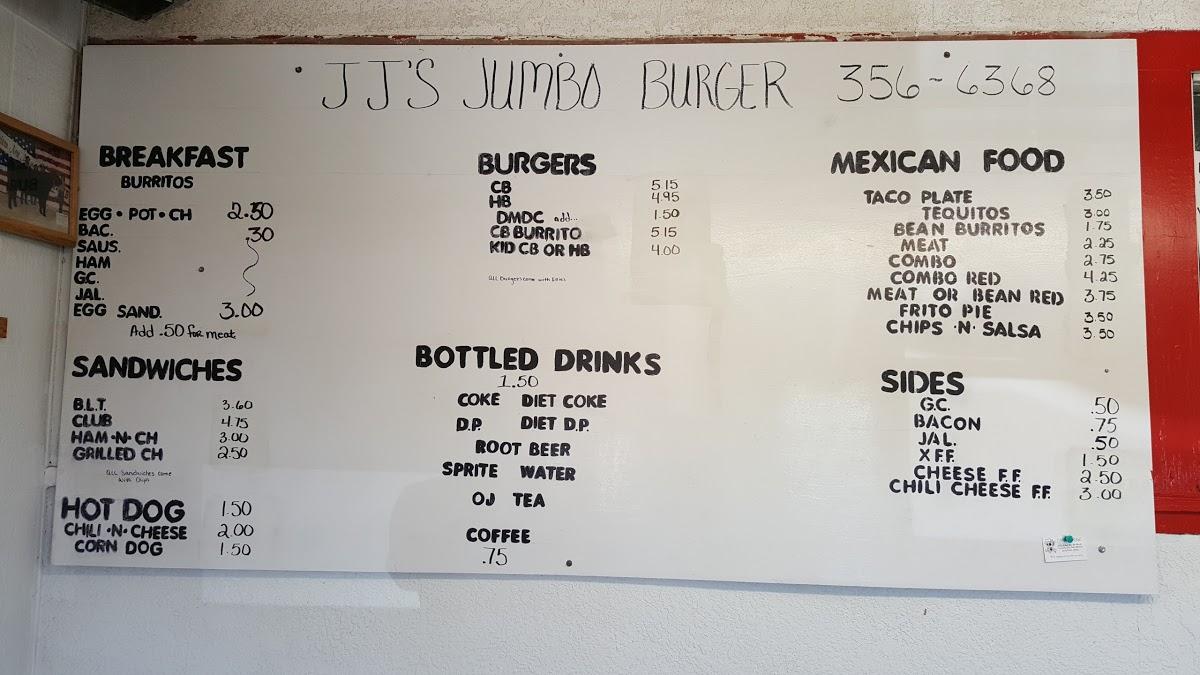 JJ'S JUMBO BURGER 356-6368
BREAKFAST
BURRITOS
EGG • POT • CH 2.50
BAC. .30
SAUS.
HAM
G.C.
JAL.
EGG SAND. 3.00
Add .50 for meat
SANDWICHES
B.L.T. 3.60
CLUB 4.75
HAM-N-CH 3.00
GRILLED CH 2.50
All Sandwiches come
With Chips
HOT DOG 1.50
CHILI-N-CHEESE 2.00
CORN DOG 1.50
BURGERS
CB 5.15
HB 4.95
DMDC add... 1.50
CB BURRITO 5.15
KID CB OR HB 4.00
All Burgers come with Fries
BOTTLED DRINKS
1.50
COKE DIET COKE
D.P. DIET D.P.
ROOT BEER
SPRITE WATER
OJ TEA
COFFEE
.75
MEXICAN FOOD
TACO PLATE 3.50
TEQUITOS 3.00
BEAN BURRITOS 1.75
MEAT 2.25
COMBO 2.75
COMBO RED 4.25
MEAT OR BEAN RED 3.75
FRITO PIE 3.50
CHIPS 'N' SALSA 3.50
SIDES
G.C. .50
BACON .75
JAL. .50
X F.F. 1.50
CHEESE F.F. 2.50
CHILI CHEESE F.F. 3.00